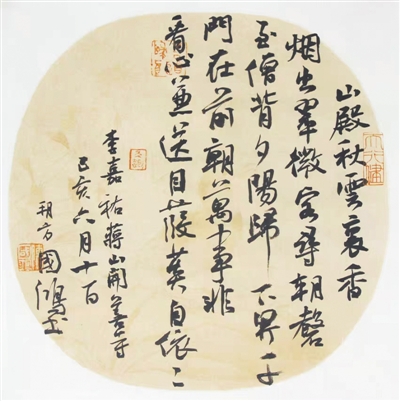 山殿秋雲裏香
烟出翠微客尋朝磬
至僧背夕陽歸下界千
門在前朝萬事非
看心兼送目葭菼自依〻
李嘉祐蔣山開善寺
己亥六月十
朔方國鴻書